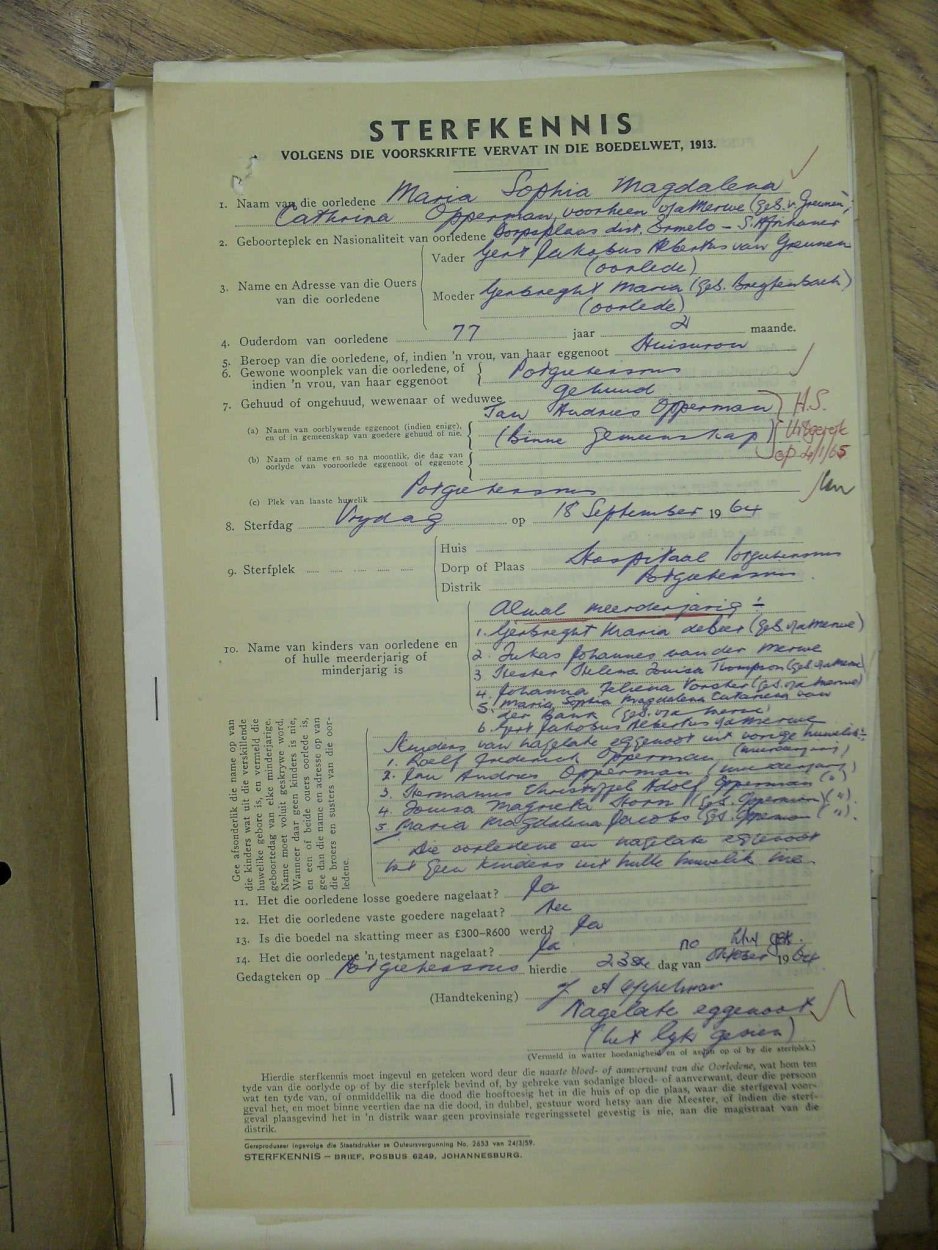 STERFKENNIS
VOLGENS DIE VOORSKRIFTE VERVAT IN DIE BOEDELWET, 1913.
1. Naam van die oorledene Maria Sophia Magdalena
Cathrina Opperman, voorheen v/d Merwe (geb. v. Greunen)
2. Geboorteplek en Nasionaliteit van oorledene dist. Ermelo - S. Afrikaner
3. Name en Adresse van die Ouers van die oorledene
Vader Gert Jakobus Albertus van Greunen
(oorlede)
Moeder Gerbreght Maria (geb. Breghenbach)
(oorlede)
4. Ouderdom van oorledene 77 jaar 2 maande.
5. Beroep van die oorledene, of, indien 'n vrou, van haar eggenoot Huisvrou
6. Gewone woonplek van die oorledene, of
indien 'n vrou, van haar eggenoot Potgietersrus
7. Gehuud of ongehuud, wewenaar of weduwee gehuud
(a) Naam van oorblywende eggenoot (indien enige),
en of in gemeenskap van goedere gehuud of nie.
Jan Andries Opperman
(Binne gemeenskap)
H.S.
Uitgereik
op 4/1/65
(b) Naam of name en so na moontlik, die dag van
oorlyde van vooroorlede eggenoot of eggenote
(c) Plek van laaste huwelik Potgietersrus
8. Sterfdag Vrydag op 18 September 1964
9. Sterfplek
Huis
Dorp of Plaas Hospitaal Potgietersrus
Distrik Potgietersrus.
10. Name van kinders van oorledene en
of hulle meerderjarig of
minderjarig is
Almal meerderjarig:-
1. Gerbreght Maria de Beer (geb. v/d Merwe)
2. Lukas Johannes van der Merwe
3. Hester Helena Louisa Thompson (geb. v/d Merwe)
4. Johanna Vorster (geb. v/d Merwe)
5. Maria Sophia Magdalena Catarina van
der Bank (geb. v/d Merwe)
6. Gert Jakobus Albertus v/d Merwe
Gee afsonderlik die name op van
die kinders wat uit die verskillende
huwelike gebore is, en vermeld die
geboortedag van elke minderjarige.
Name moet voluit geskrywe word.
Wanneer daar geen kinders is nie,
en een of beide ouers oorlede is,
gee dan die name en adresse op van
die broers en susters van die oor-
ledene.
Kinders van nagelate eggenoot uit vorige huwelik:-
1. Roelf Frederick Opperman (meerderjarig)
2. Jan Andries Opperman (meerderjarig)
3. Hermanus Christoffel Adolf Opperman (")
4. Louisa Magrieta Storm (geb. Opperman) (").
5. Maria Magdalena Jacobs (geb. Opperman) (").
Die oorledene en nagelate eggenoot
het geen kinders uit hulle huwelik nie.
11. Het die oorledene losse goedere nagelaat? Ja
12. Het die oorledene vaste goedere nagelaat? Nee
13. Is die boedel na skatting meer as £300-R600 werd? Ja
14. Het die oorledene 'n testament nagelaat? Ja
Gedagteken op Potgietersrus hierdie 23ste dag van Oktober 1964
(Handtekening) J A Opperman
Nagelate eggenoot
(het lyk gesien)
(Vermeld in watter hoedanigheid en of aanwesig op of by die sterfplek.)
Hierdie sterfkennis moet ingevul en geteken word deur die naaste bloed- of aanverwant van die Oorledene, wat hom ten
tyde van die oorlyde op of by die sterfplek bevind of, by gebreke van sodanige bloed- of aanverwant, deur die persoon
wat ten tyde van, of onmiddellik na die dood die hooftoesig het in die huis of op die plaas, waar die sterfgeval voor-
geval het, en moet binne veertien dae na die dood, in dubbel, gestuur word hetsy aan die Meester, of indien die sterf-
geval plaasgevind het in 'n distrik waar geen provinsiale regeringssetel gevestig is nie, aan die magistraat van die
distrik.
Gereproduseer ingevolge die Staatsdrukker se Outeursvergunning No. 2653 van 24/3/59.
STERFKENNIS — BRIEF, POSBUS 6249, JOHANNESBURG.